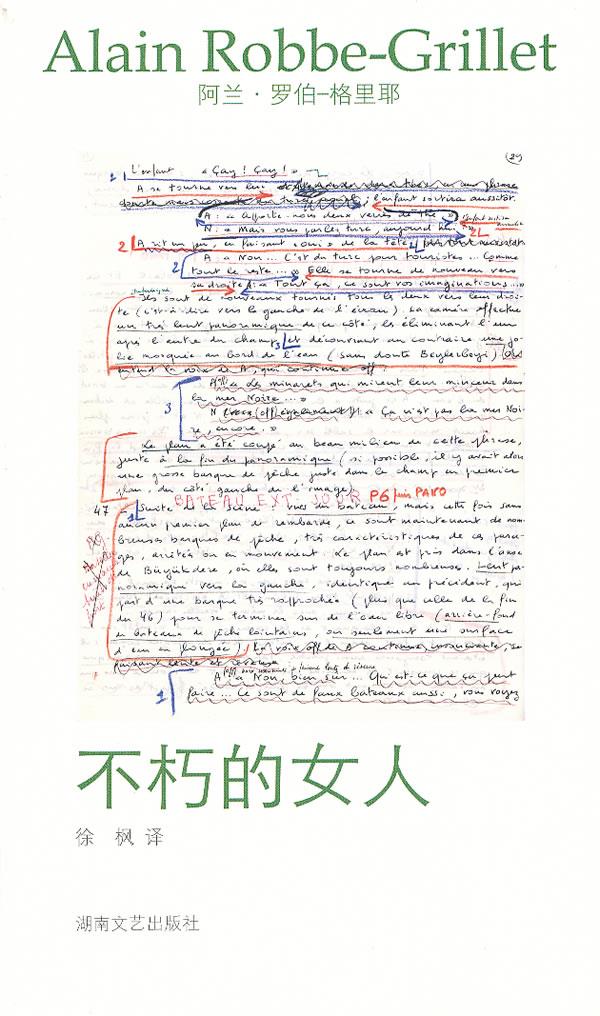 Alain Robbe-Grillet
阿兰·罗伯-格里耶
(29)
L'enfant « Çay ! Çay ! »
A se tourne vers lui ; l'enfant sortira aussitôt.
A : « Apporte-nous deux verres de thé
N : « Mais vous parlez turc, aujourd'hui
A rit un peu, en faisant « oui » de la tête
A « Non... C'est du turc pour touristes... Comme
tout le reste... » Elle se tourne de nouveau vers
sa droite : « Tout ça, ce sont vos imaginations... »
Ils sont de nouveau tournés tous les deux vers leur droi-
te (c'est-à-dire vers la gauche de l'écran). La caméra effectue
un très lent panoramique de ce côté, les éliminant l'un
après l'autre du champ, et découvrant au contraire une jo-
lie mosquée au bord de l'eau (sans doute Beylerbeyi) On
entend la voix de A, qui continue off :
A « Les minarets qui mirent leur minceur dans
la mer Noire... »
N (off) « Ça n'est pas la mer Noi-
re, encore. »
Le plan a été coupé au beau milieu de cette phrase,
juste à la fin du panoramique (si possible, il y avait alors
une grosse barque de pêche juste dans le champ en premier
plan, du côté gauche de l'image)
BATEAU EXT. JOUR P6 fin PANO
47 Suite de la scène : vues du bateau, mais cette fois sans
aucun premier plan de rembarde, ce sont maintenant de nom-
breuses barques de pêche, très caractéristiques de ces para-
ges, arrêtés ou en mouvement. Le plan est pris dans l'anse
de Büyükdere, où elles sont toujours nombreuses. Lent pa-
noramique vers la gauche, identique au précédent, qui
part d'une barque très rapprochée (plus que celle de la fin
du 46) pour se terminer sur de l'eau libre (arrière-fond
de bateaux de pêche lointains, ou seulement une surface
d'eau en plongée) La voix off de A continue, se
faisant lente et
A « Non, bien sûr... Qu'est-ce que ça peut
faire... Ce sont de faux bateaux aussi, vous voyez
不朽的女人
徐 枫 译
湖南文艺出版社